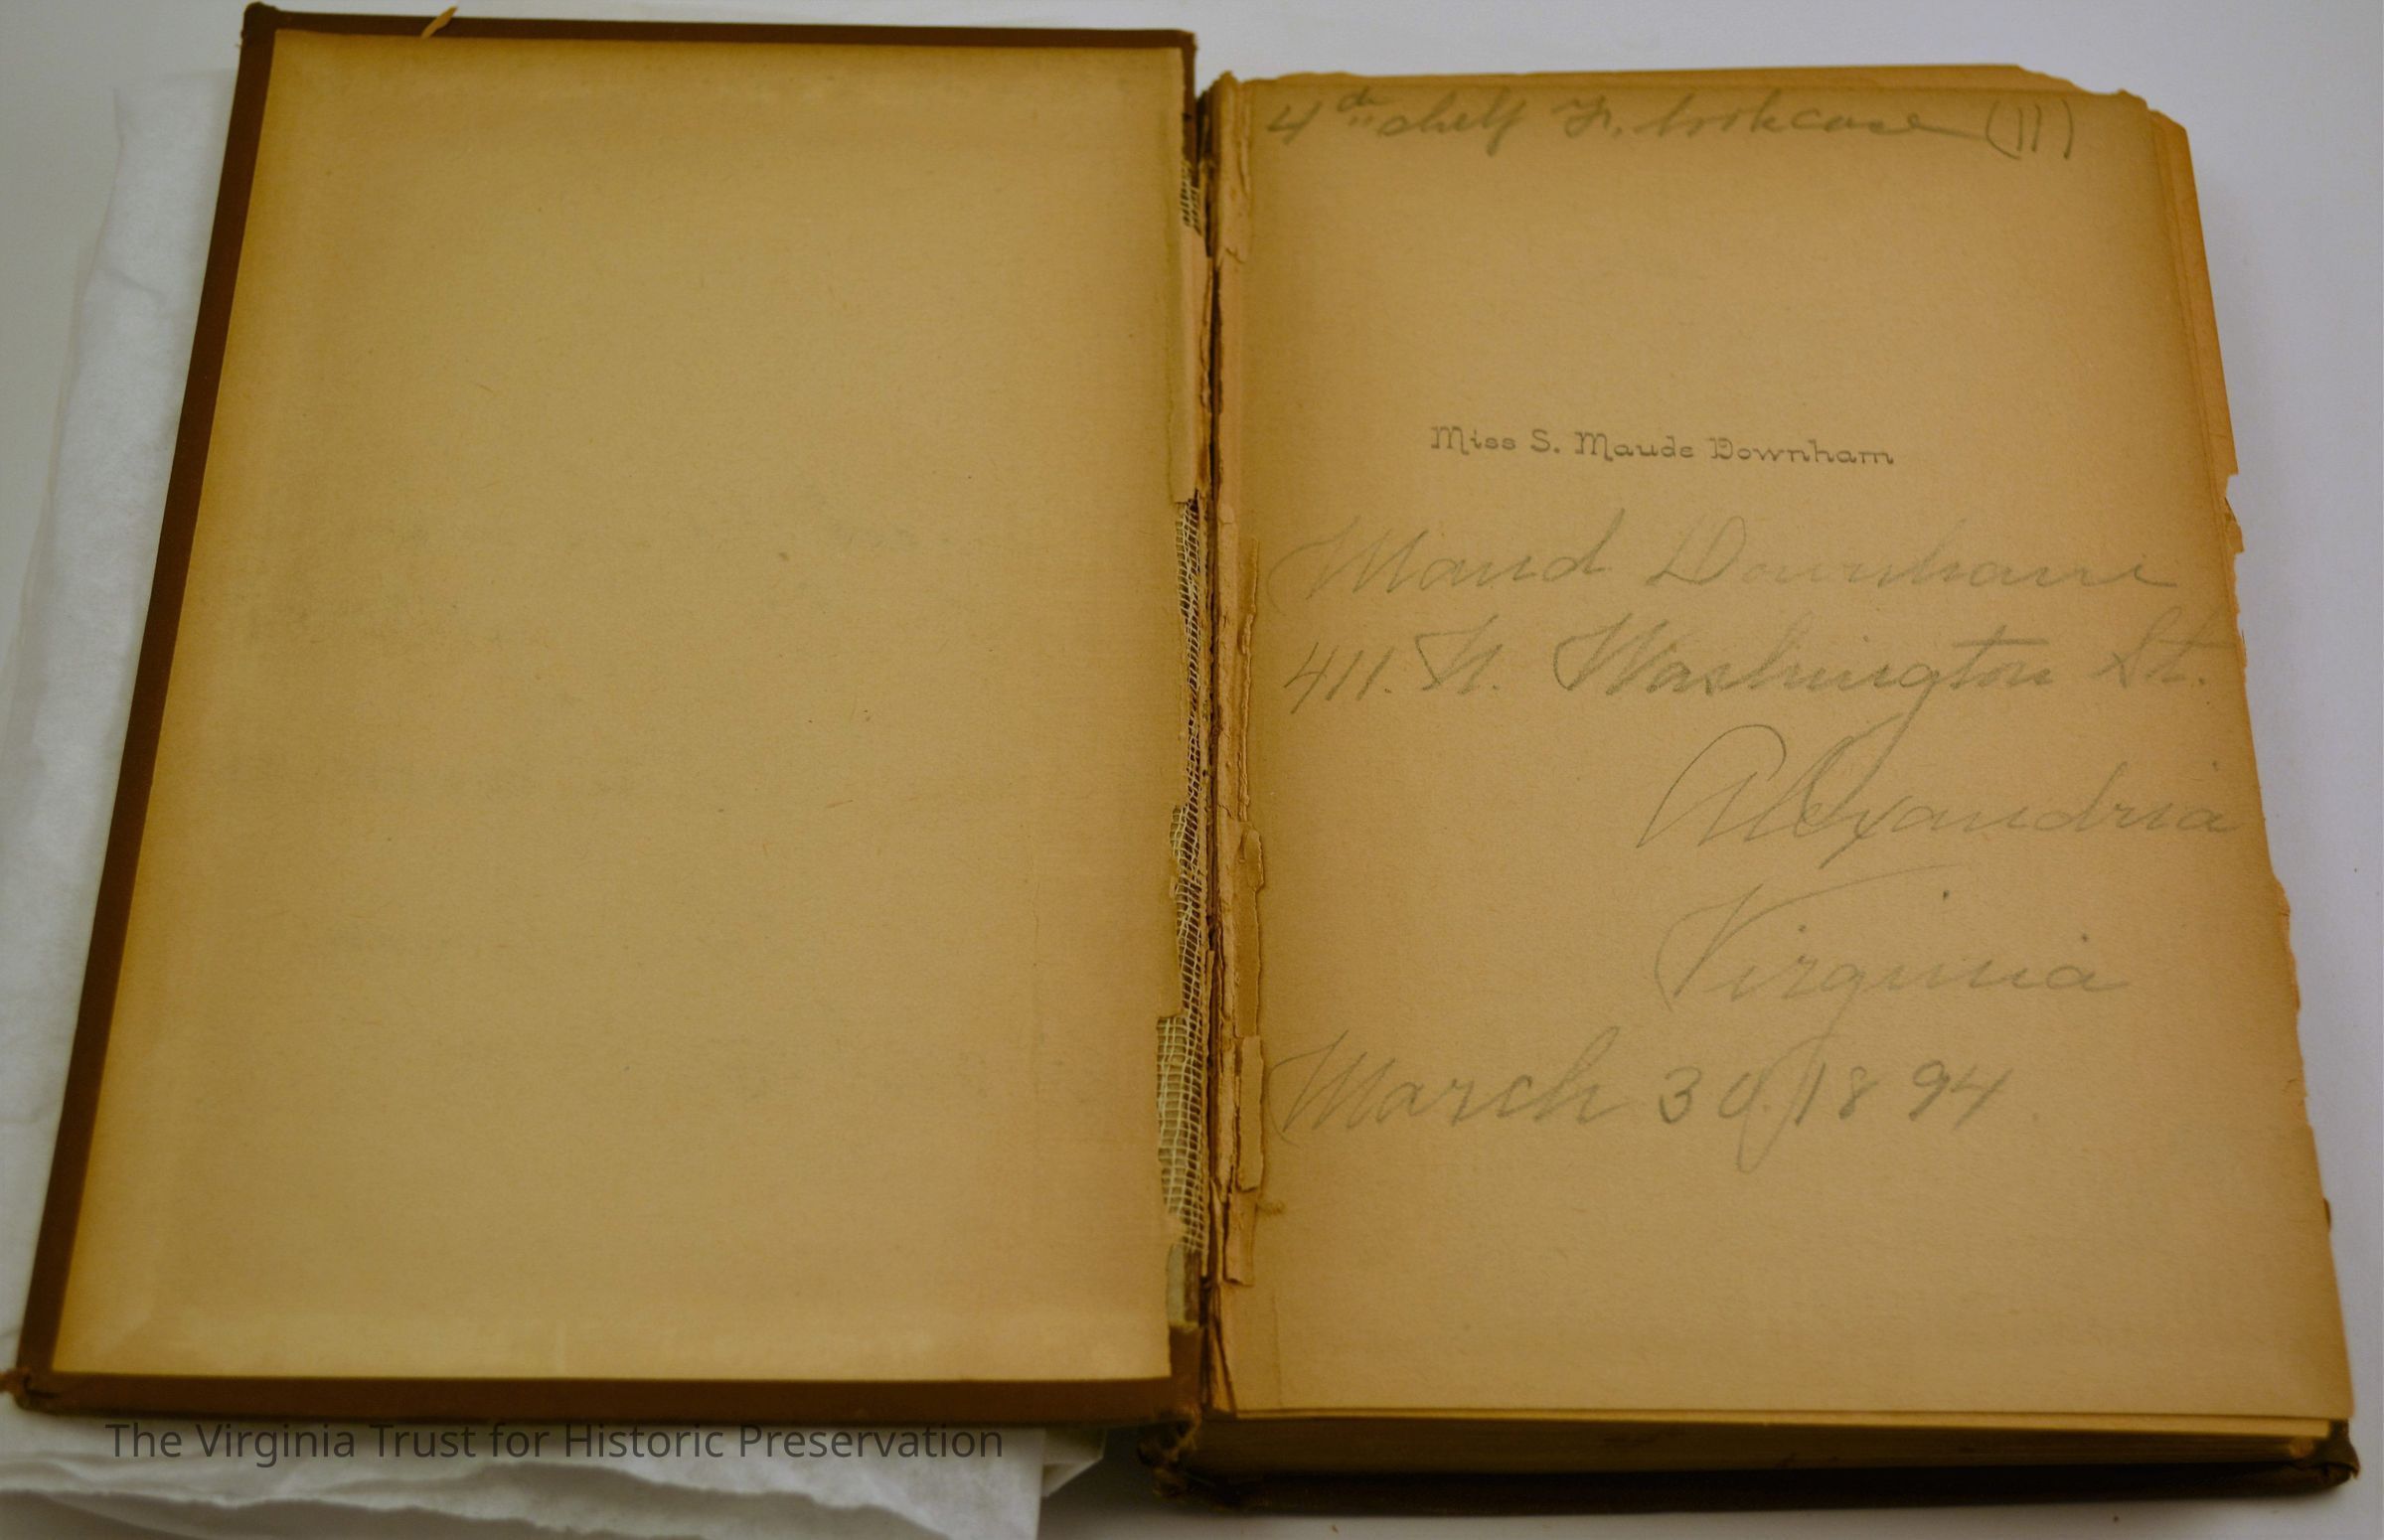 4th shelf Fr. bookcase (11)
Miss S. Maude Downham
Maud Downham
411. N. Washington St.
Alexandria
Virginia
March 30, 1894.
The Virginia Trust for Historic Preservation